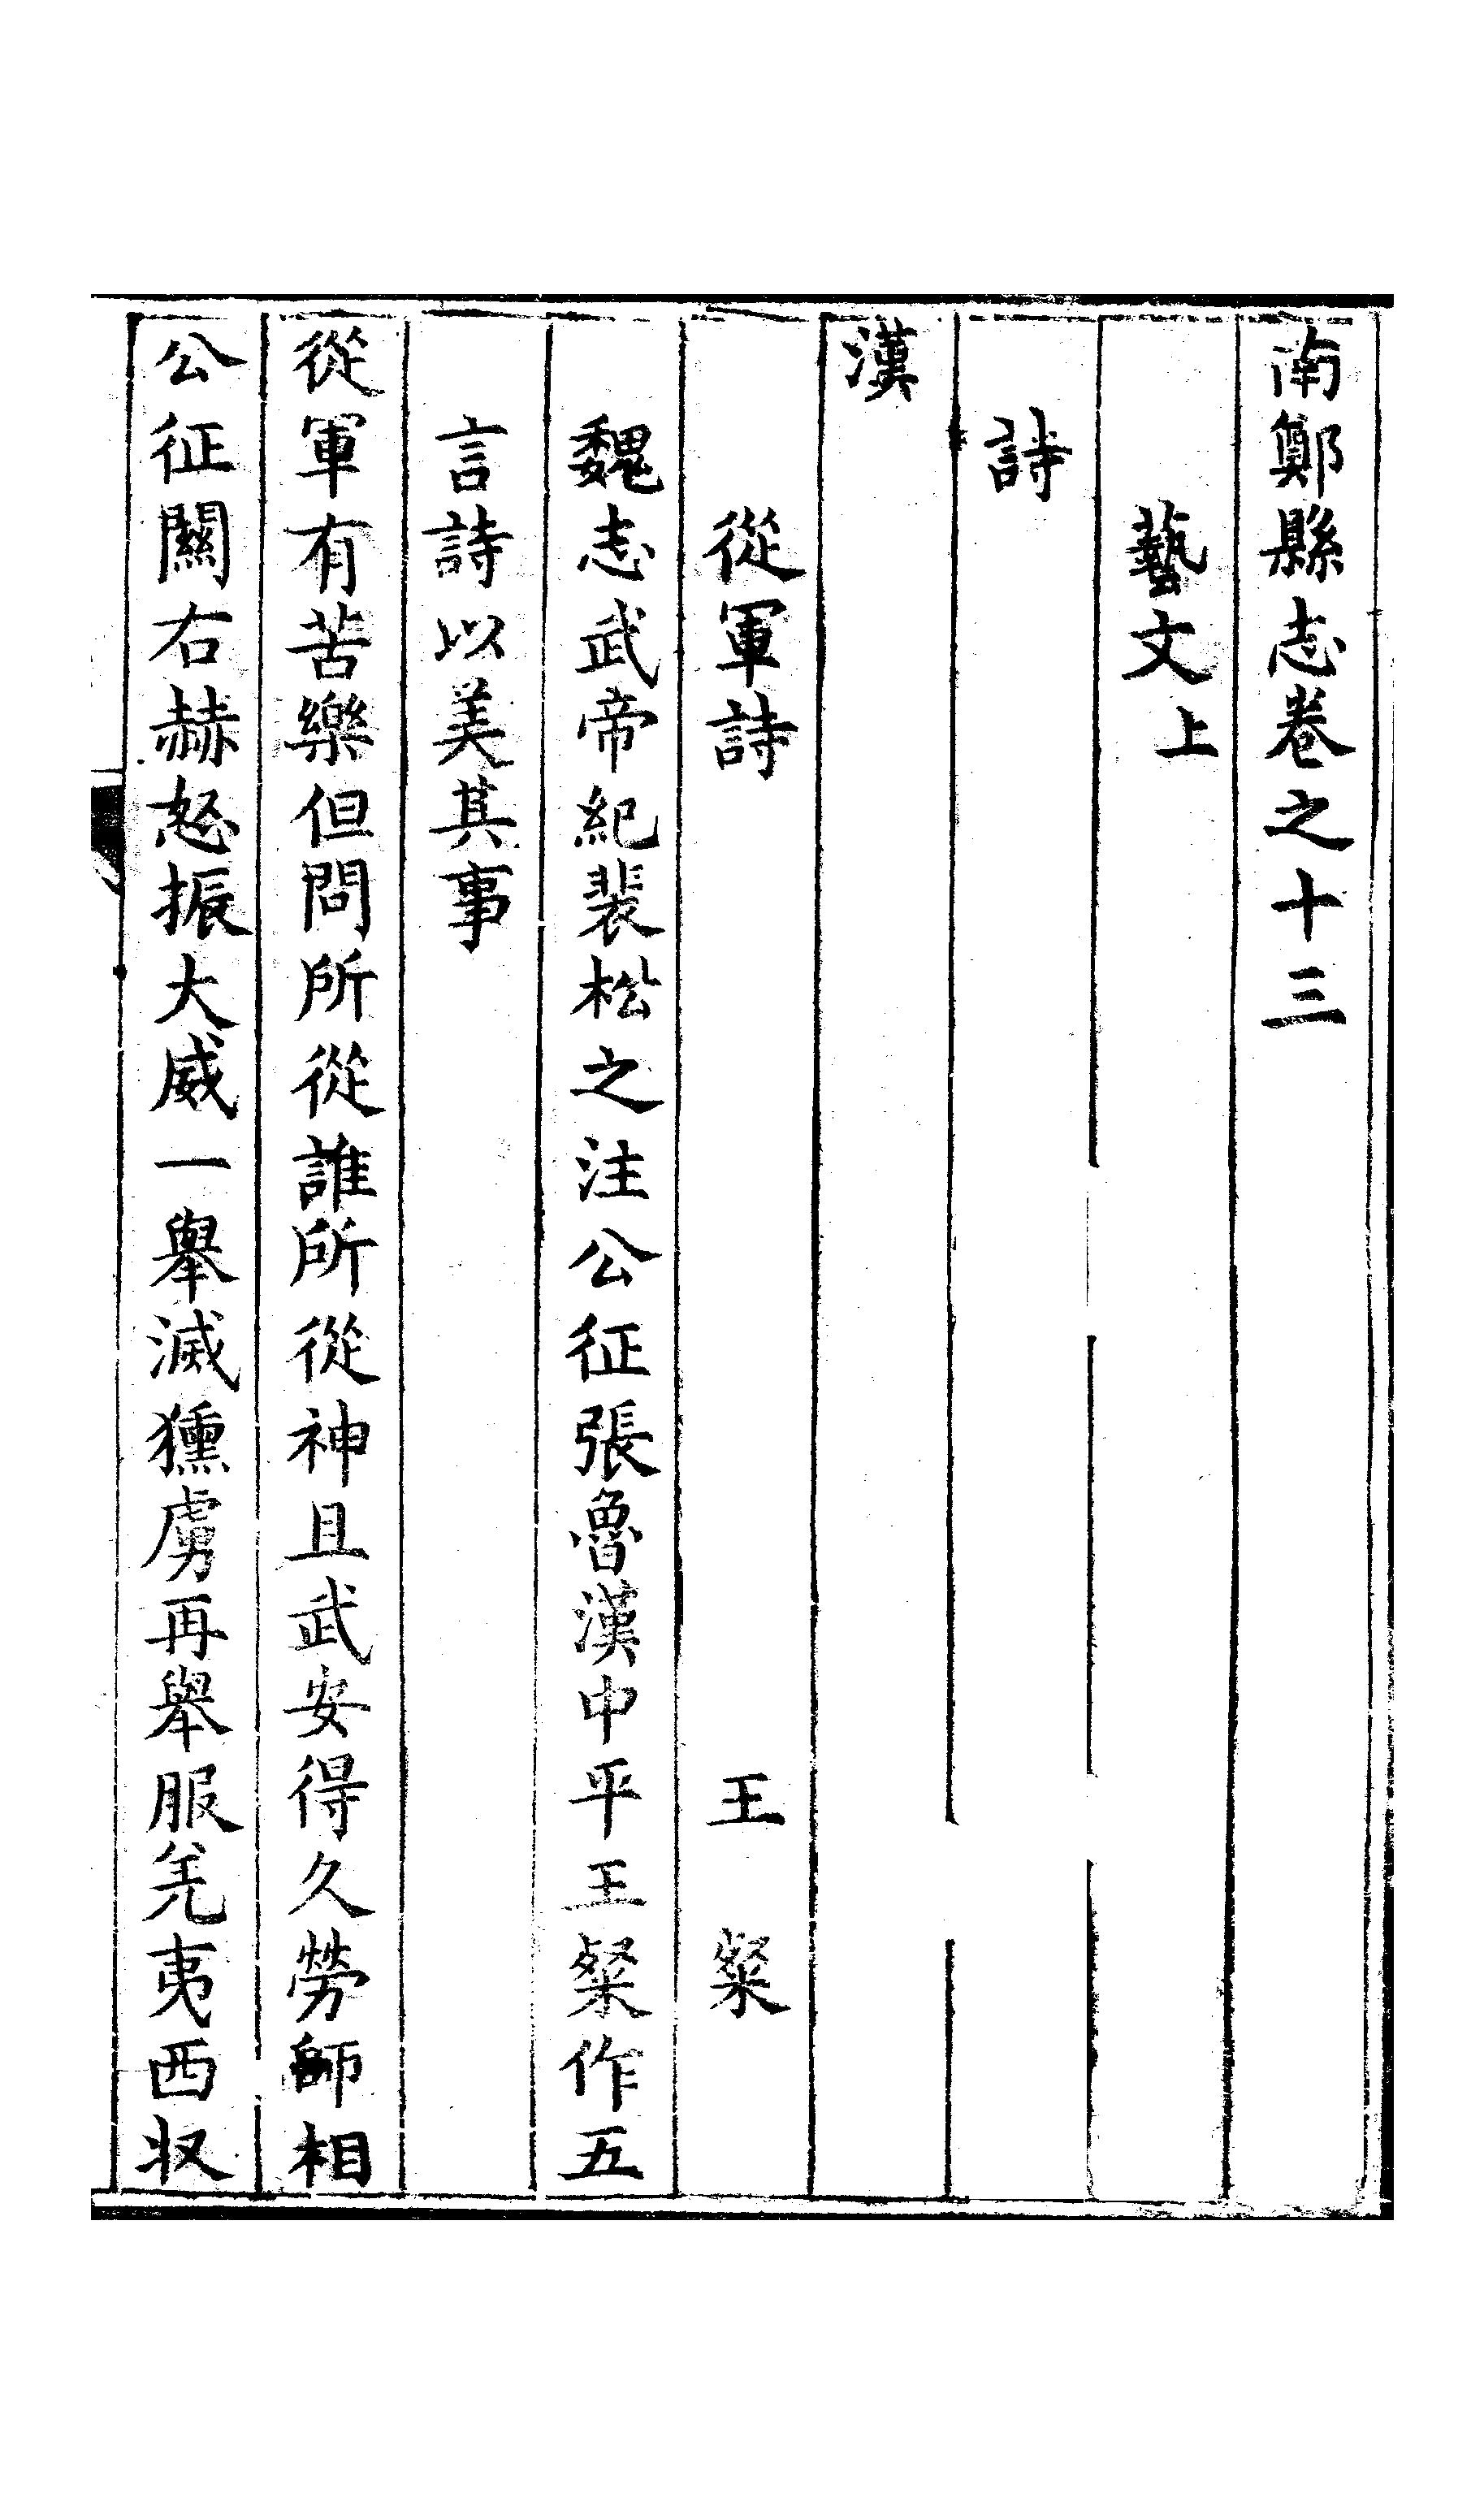 南鄭縣志卷之十三
藝文上
詩
漢
從軍詩 王粲
魏志武帝紀裴松之注公征張魯漢中平王粲作五
言詩以美其事
從軍有苦樂但問所從誰所從神且武安得久勞師相
公征關右赫怒振大威一舉滅獯虜再舉服羌夷西収